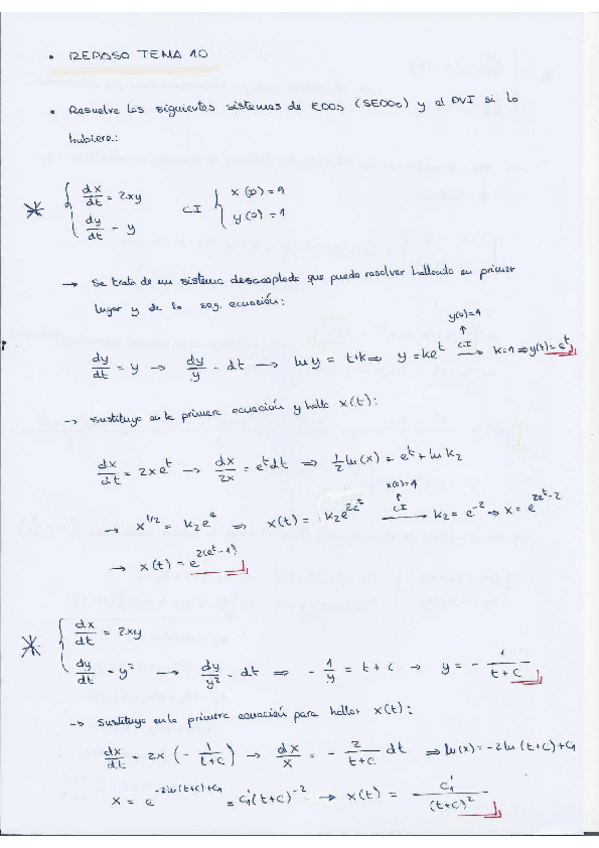 • REPASO TEMA 10
• Resuelve los siguientes sistemas de EDOs (SEDOs) y al PVI si lo
hubiere.:
* { dx/dt = 2xy CI { x(0)=1
dy/dt = y y(0)=1
→ Se trata de un sistema desacoplado que puedo resolver hallando en primer
lugar y de la seg. ecuación:
y(0)=1
dy/dt = y → dy/y = dt → ln y = t+k ⇒ y = ke^t →(CI) k=1 ⇒ y(t)=e^t
→ Sustituyo en la primera ecuación y hallo x(t):
dx/dt = 2xe^t → dx/2x = e^t dt ⇒ 1/2 ln(x) = e^t + ln k2
x(0)=1
→ x^(1/2) = k2 e^e ⇒ x(t) = k2 e^(2e^t) →(CI) k2 = e^-2 ⇒ x = e^(2e^t-2)
→ x(t) = e^(2(e^t-1))
* { dx/dt = 2xy
dy/dt = y² → dy/y² = dt ⇒ - 1/y = t + c → y = - 1/(t+c)
→ Sustituyo en la primera ecuación para hallar x(t):
dx/dt = 2x (- 1/(t+c)) → dx/x = - 2/(t+c) dt ⇒ ln(x) = -2ln(t+c)+c1
x = e^(-2ln(t+c)+c1) = c1'(t+c)^-2 → x(t) = c1'/(t+c)²